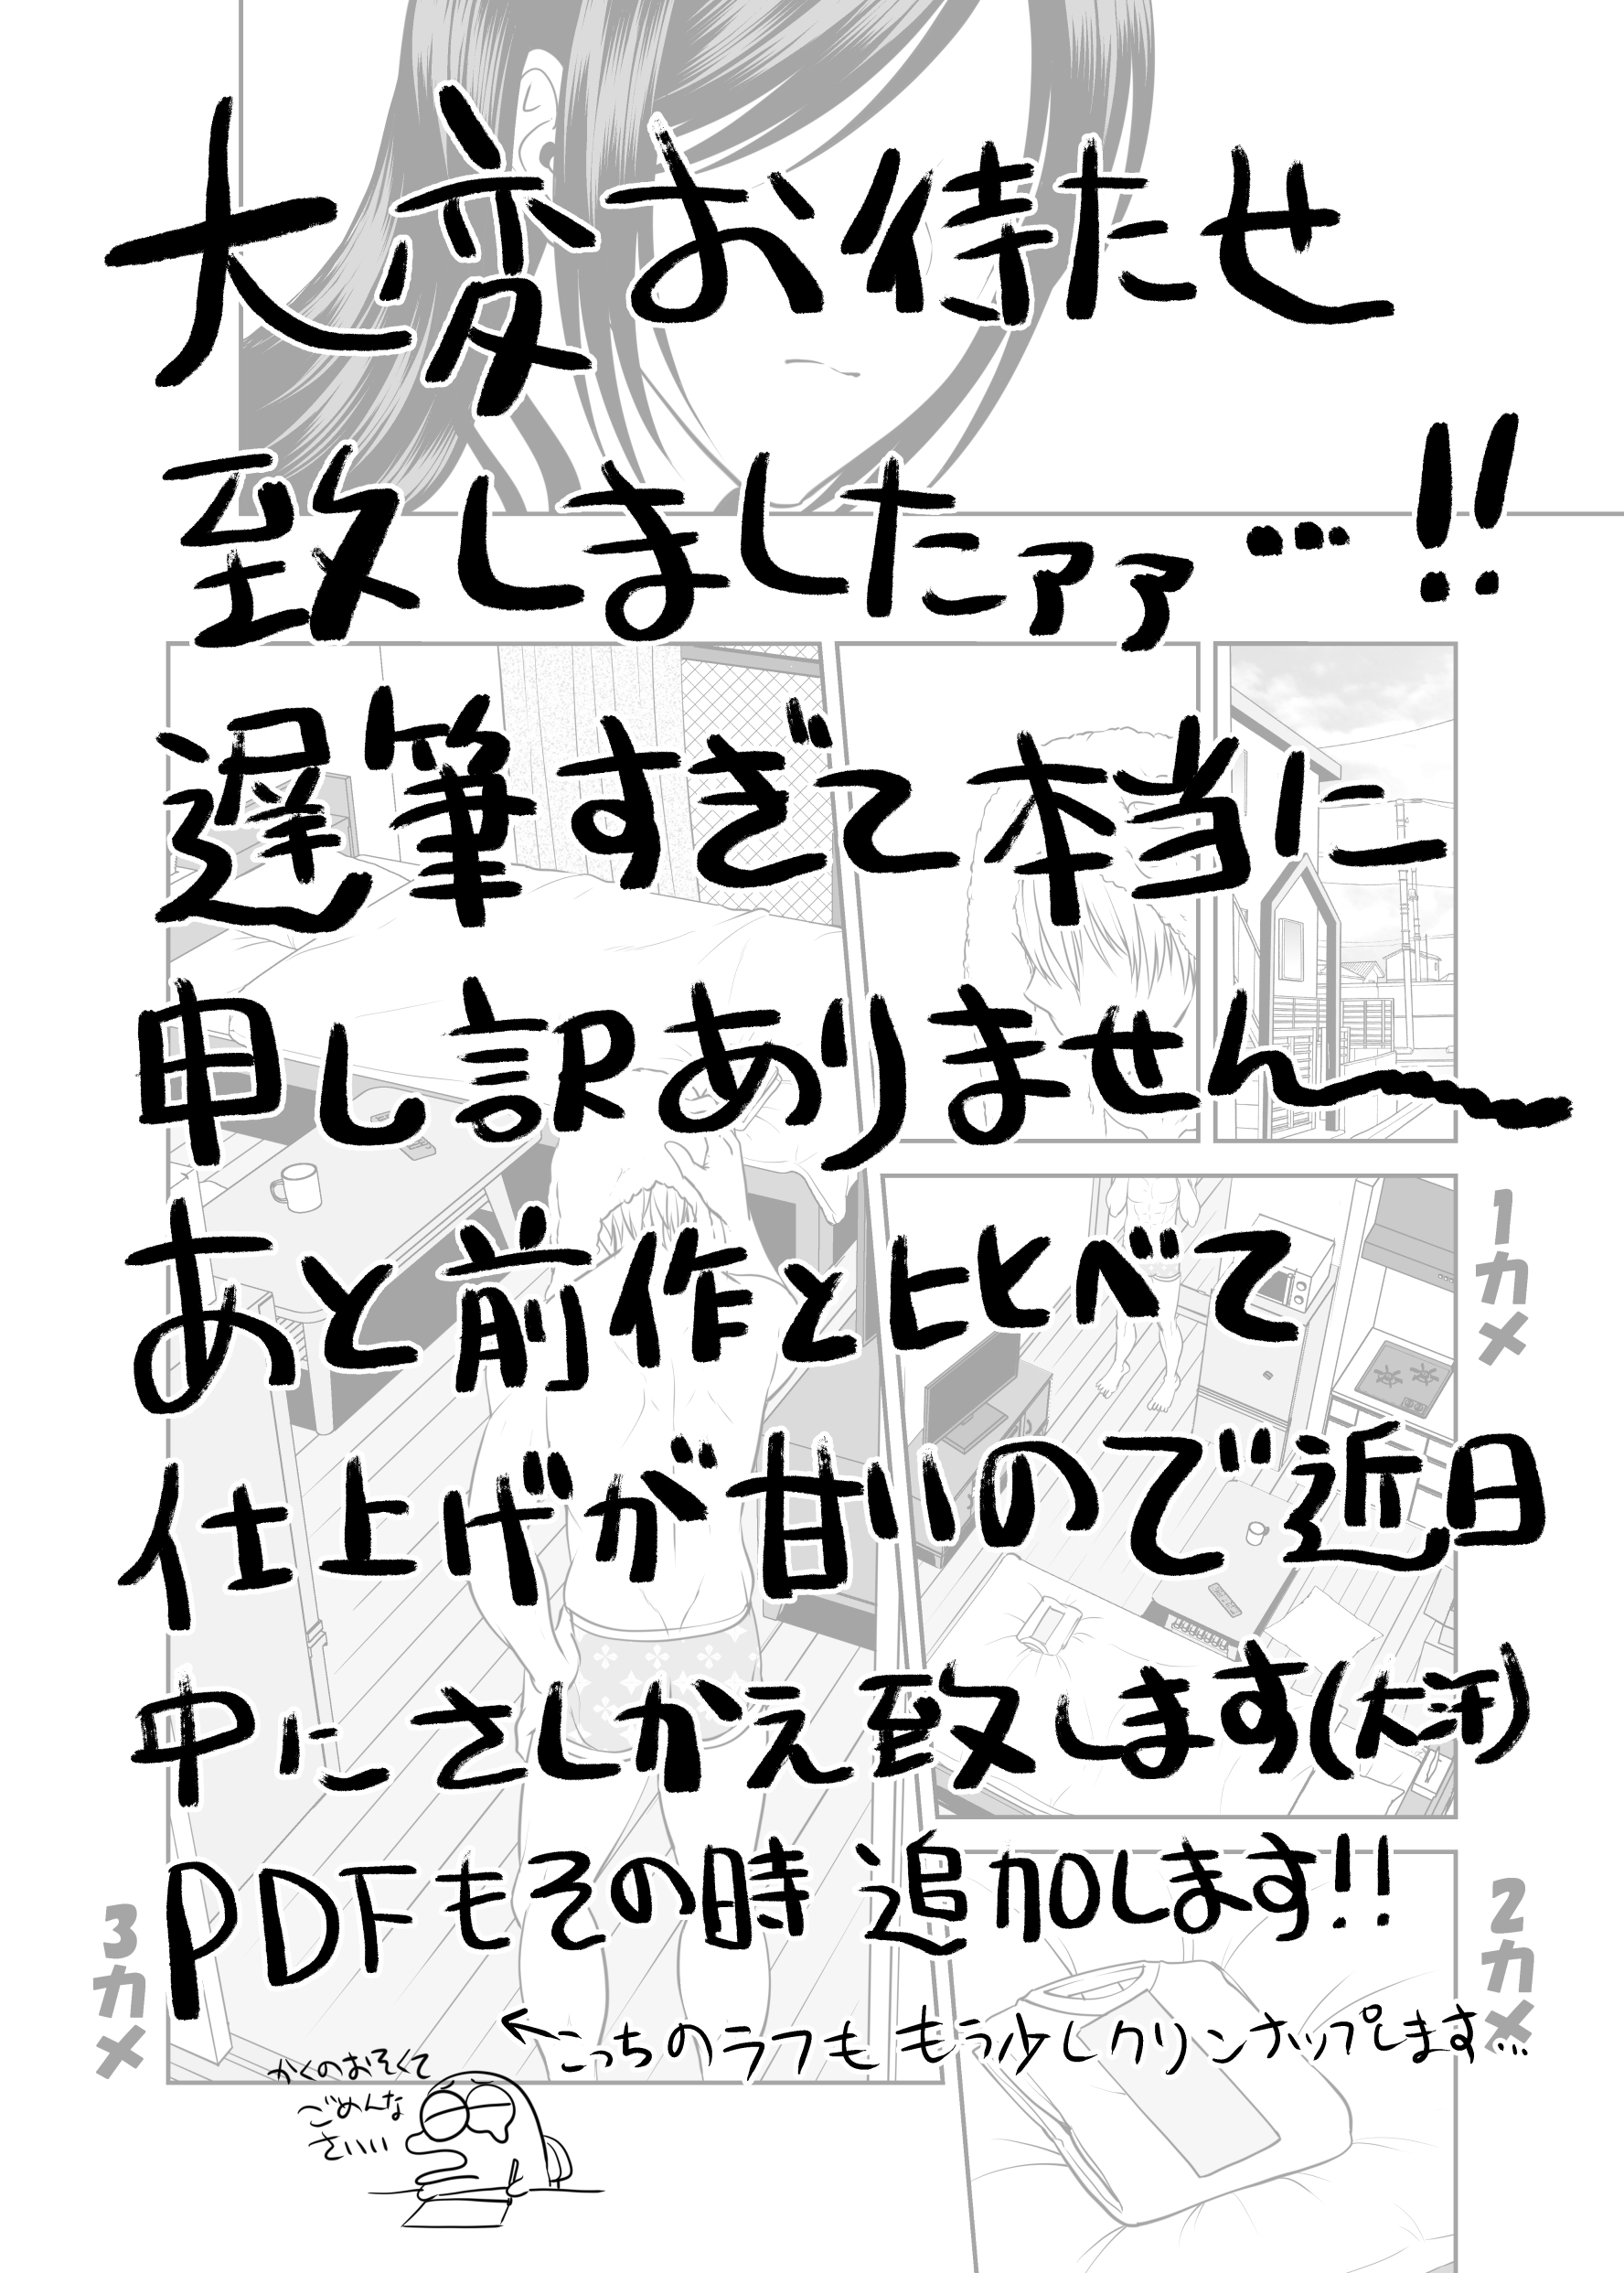 大変お待たせ
致しましたァァ…!!
遅筆すぎて本当に
申し訳ありません〜
あと前作と比べて
仕上げが甘いので近日
中にさしかえ致します(大汗)
PDFもその時追加します!!
←こっちのラフももう少しクリンナップします…
かくのおそくて
ごめんな
さいい
1カメ
2カメ
3カメ